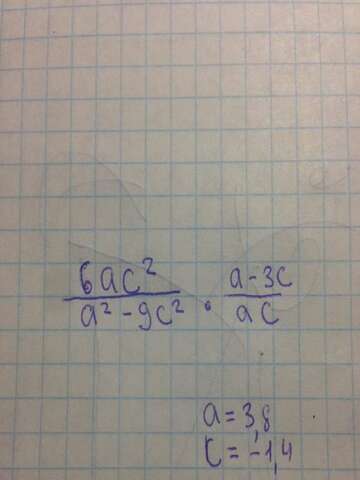 6ac² / a² - 9c² · a - 3c / ac
a = 3,8
c = -1,4